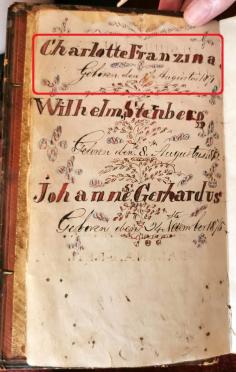 Charlotte Franzina
Geboren den August
Wilhelm Stenberg
Geboren den 8 August
Johanne Gerhardus
Geboren den 24 November